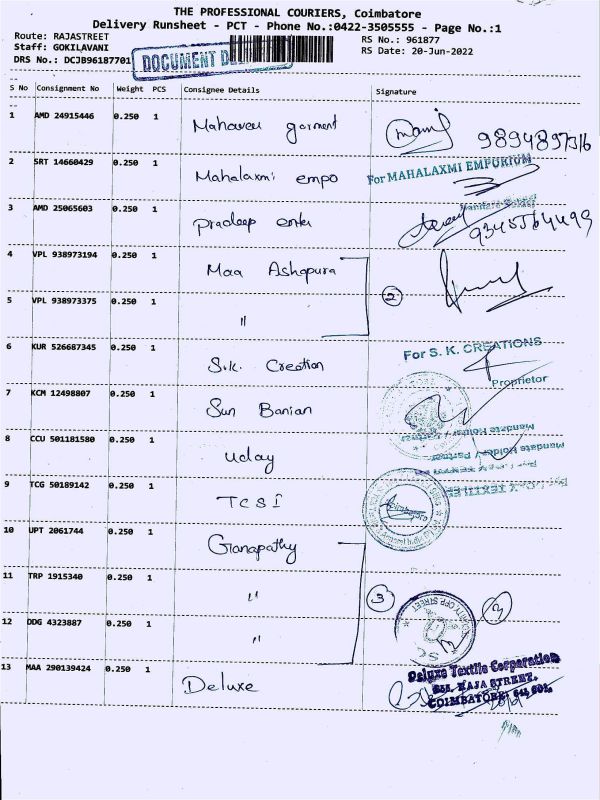 THE PROFESSIONAL COURIERS, Coimbatore
Delivery Runsheet - PCT - Phone No.:0422-3505555 - Page No.:1
Route: RAJASTREET
RS No.: 961877
Staff: GOKILAVANI
RS Date: 20-Jun-2022
DRS No.: DCJB96187701
DOCUMENT
S No Consignment No Weight PCS Consignee Details Signature
1 AMD 24915446 0.250 1 Mahaveer garment
2 SRT 14660429 0.250 1 Mahalaxmi empo For MAHALAXMI EMPORIUM
3 AMD 25065603 0.250 1 Pradeep enter
4 VPL 938973194 0.250 1 Maa Ashapura
2
5 VPL 938973375 0.250 1 "
6 KUR 526687345 0.250 1 S.K. Creation For S. K. CREATIONS
Proprietor
7 KCM 12498807 0.250 1 Sun Banian
8 CCU 501181580 0.250 1 Uday
Mandate Holder / Partner
9 TCG 50189142 0.250 1 TCSI
Coimbatore
10 UPT 2061744 0.250 1 Ganapathy
11 TRP 1915340 0.250 1 "
3
12 DDG 4323887 0.250 1 "
13 MAA 290139424 0.250 1 Deluxe
Deluxe Textile Corporation
RAJA STREET,
COIMBATORE 641 001.